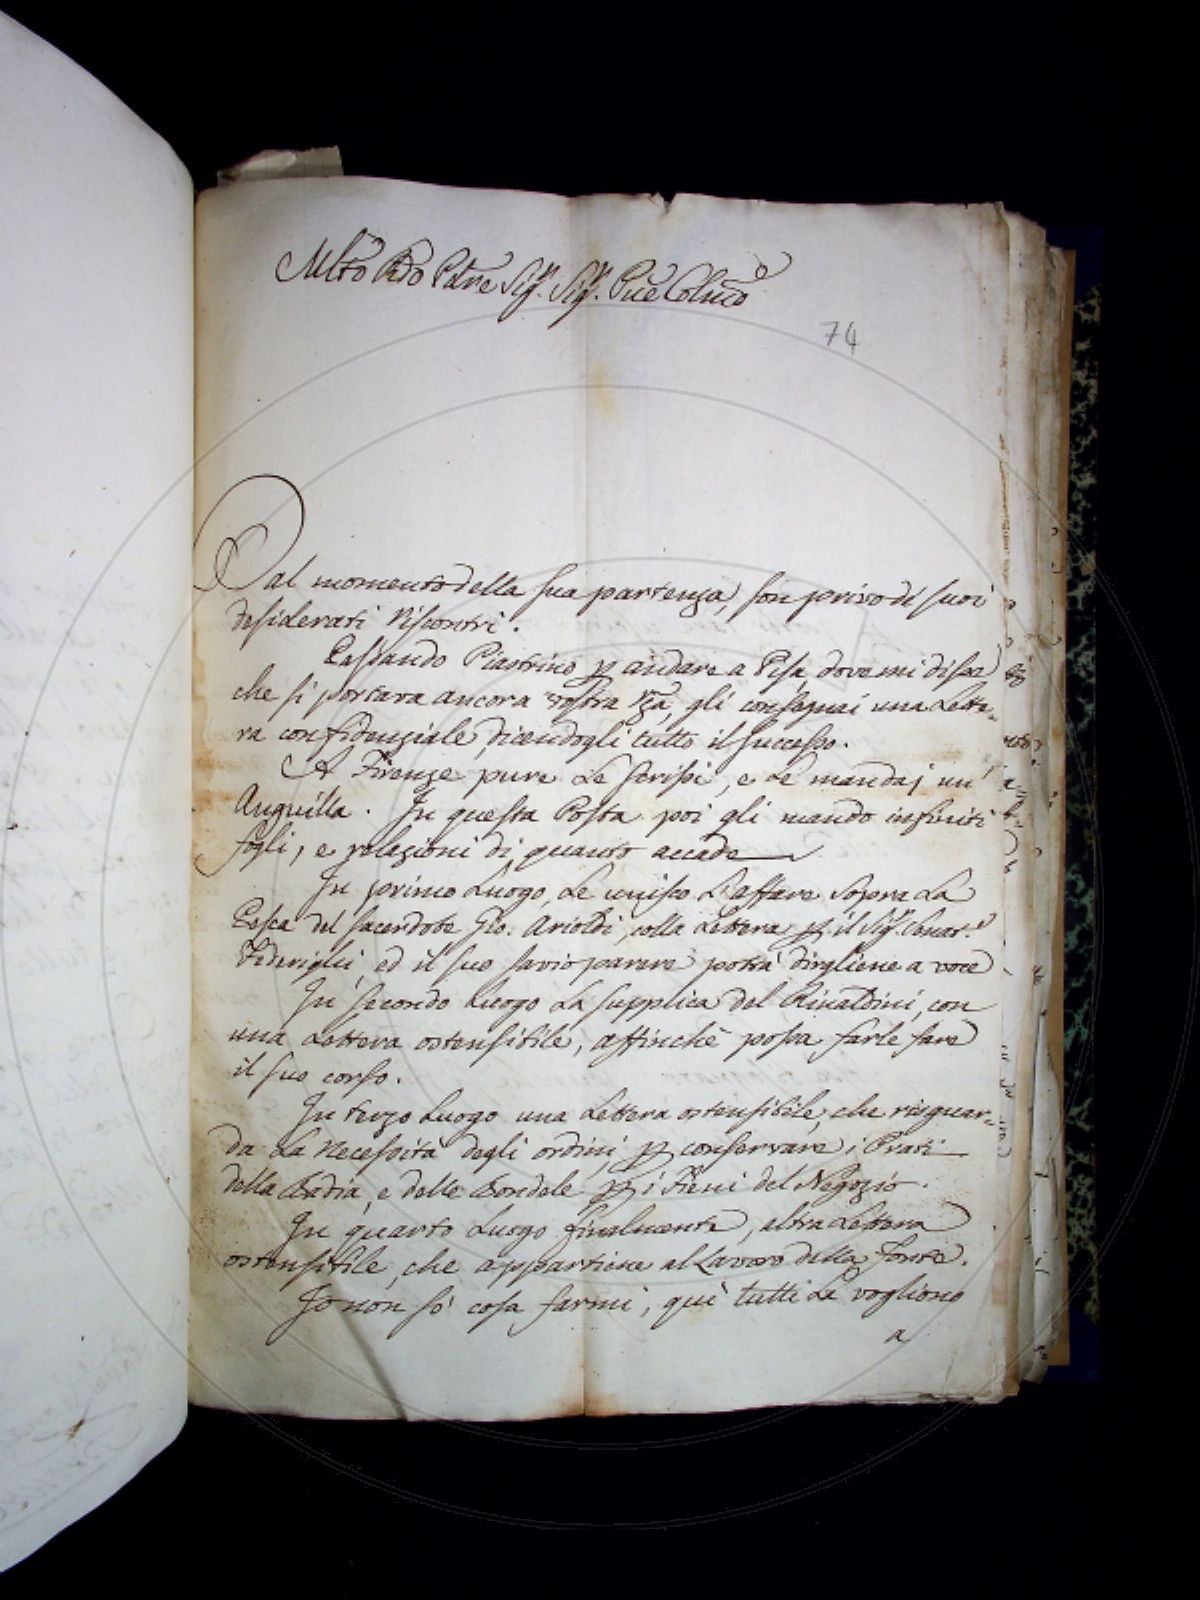 Mlto Rdo Padre Sigr. Sigr. Pne Colmo
74
Dal momento della sua partenza, son privo di suoi
desiderati riscontri.
Passando Piastrino p andare a Pisa, dove mi disse
che si portava ancora vostra Rza, gli consegnai una Lette=
ra confidenziale dicendogli tutto il successo.
A Firenze pure Le scrissi, e Le mandai un'
Anguilla. In questa Posta poi gli mando infiniti
fogli, e relazioni di quanto accade
In primo Luogo, Le unisco L'affare sopra La
Pesca del sacerdote Gio. Arioldi, colla Lettera p il Sigr.
Federighi, ed il suo savio parere potrà dirgliene a voce
In secondo Luogo La supplica del Rinaldini, con
una Lettera ostensibile, affinchè possa farle fare
il suo corso.
In terzo Luogo una Lettera ostensibile, che risguar=
da La Necessità degli ordini p conservare i Prati
della Badia, e delle Bondole p i Fieni del Negozio.
In quarto Luogo finalmente, altra Lettera
ostensibile, che appartiene al Lavoro della Fonte.
Io non sò cosa farmi, quì tutti La vogliono
a